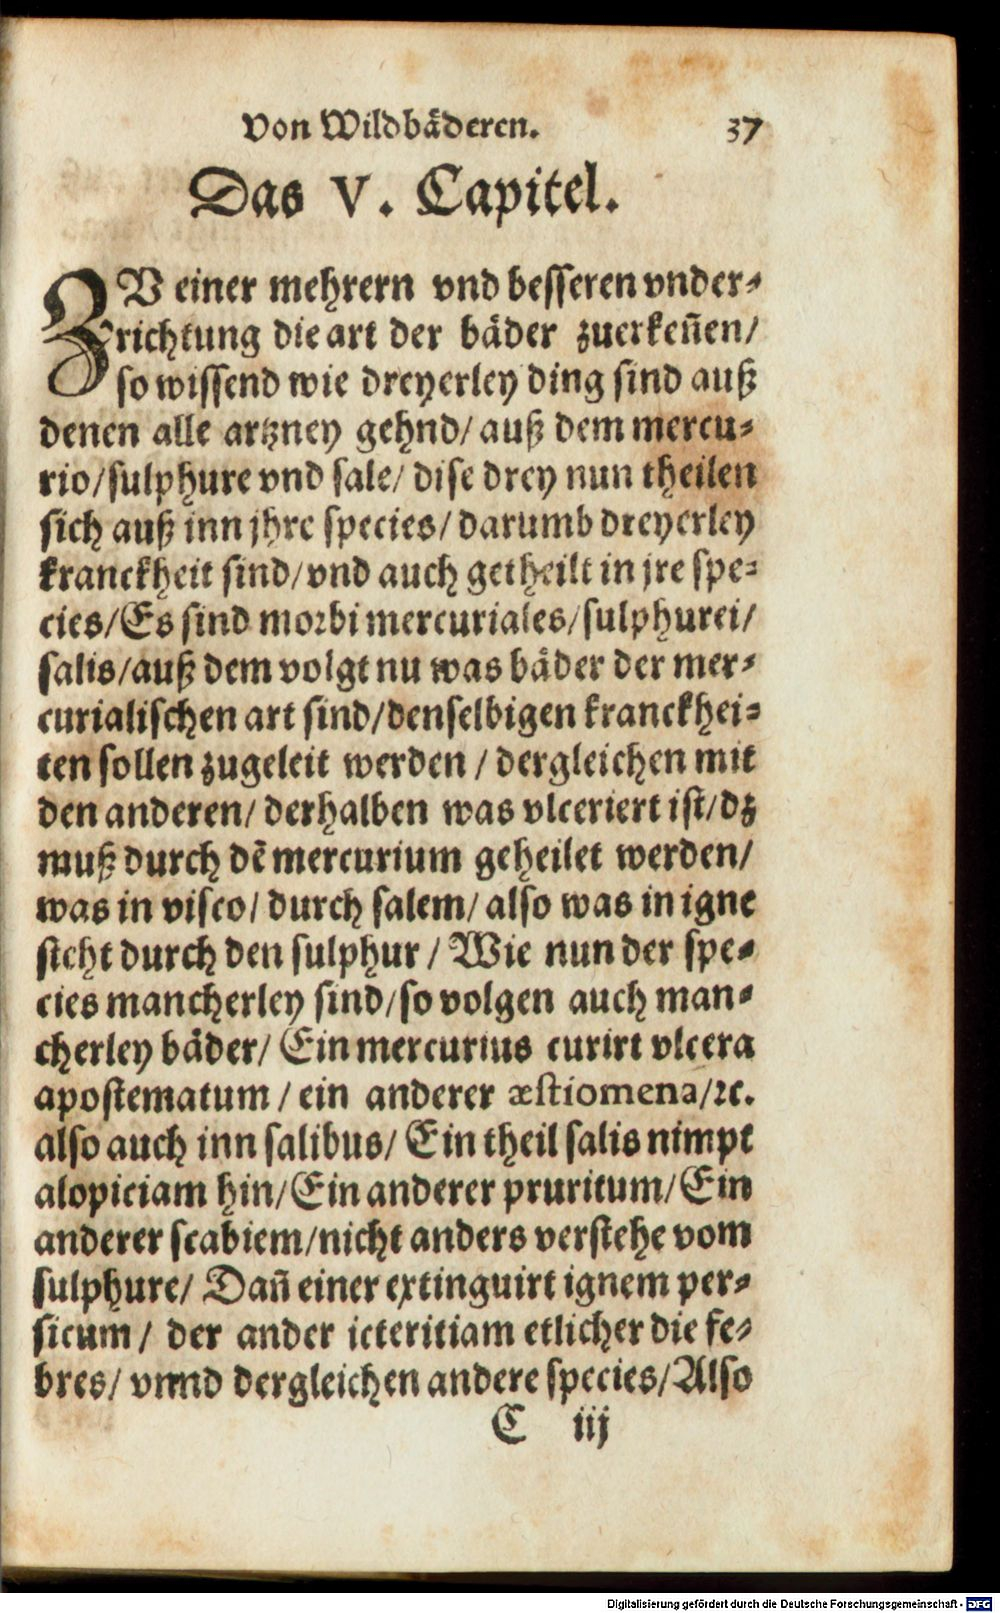 Von Wildbäderen. 37
Das V. Capitel.
ZV einer mehrern vnd besseren vnder-
richtung die art der bäder zuerkeñen/
so wissend wie dreyerley ding sind auß
denen alle artzney gehnd/ auß dem mercu-
rio/ sulphure vnd sale/ dise drey nun theilen
sich auß inn jhre species/ darumb dreyerley
kranckheit sind/ vnd auch getheilt in jre spe-
cies/ Es sind morbi mercuriales/ sulphurei/
salis/ auß dem volgt nu was bäder der mer-
curialischen art sind/ denselbigen kranckhei-
ten sollen zugeleit werden / dergleichen mit
den anderen/ derhalben was vlceriert ist/ dz
muß durch dē mercurium geheilet werden/
was in visco/ durch salem/ also was in igne
steht durch den sulphur / Wie nun der spe-
cies mancherley sind/ so volgen auch man-
cherley bäder/ Ein mercurius curirt vlcera
apostematum / ein anderer æstiomena/ ꝛc.
also auch inn salibus/ Ein theil salis nimpt
alopiciam hin/ Ein anderer pruritum/ Ein
anderer scabiem/ nicht anders verstehe vom
sulphure/ Dañ einer extinguirt ignem per-
sicum / der ander icteritiam etlicher die fe-
bres/ vnnd dergleichen andere species/ Also
C iij
Digitalisierung gefördert durch die Deutsche Forschungsgemeinschaft - DFG